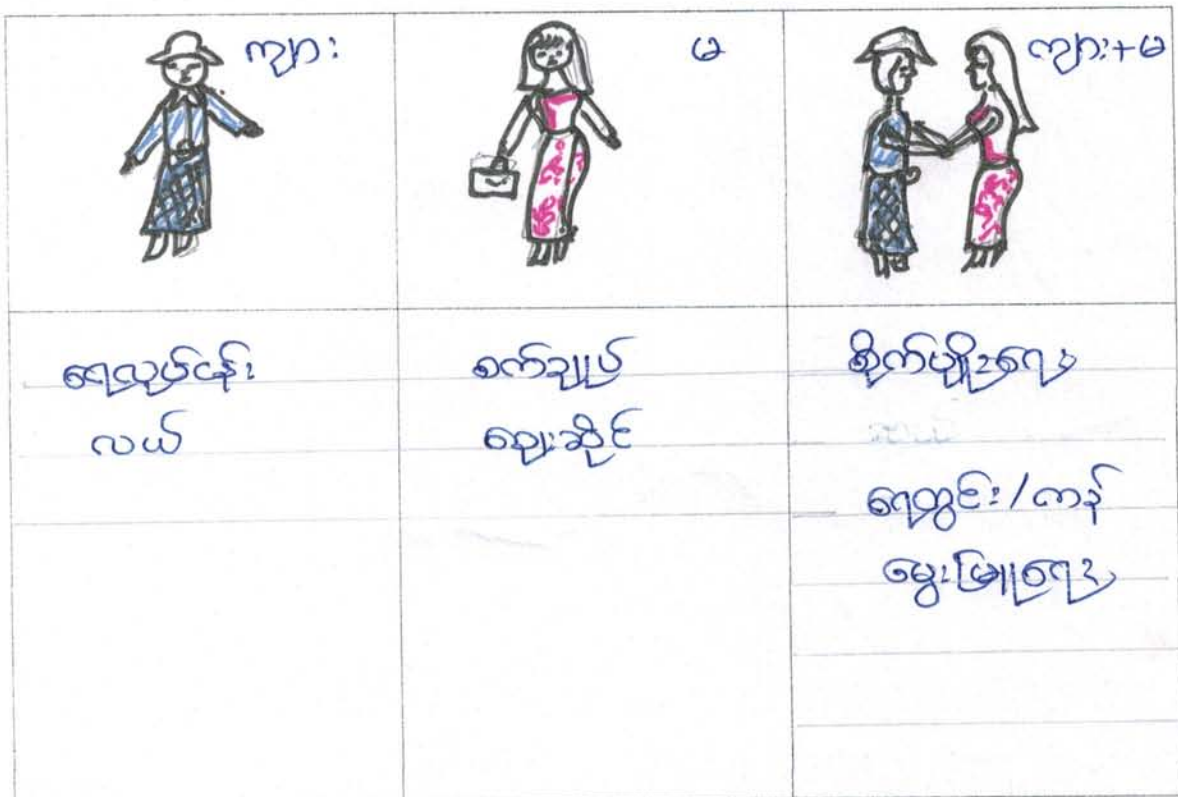 ကျား
မ
ကျား+မ
ရေလုပ်ငန်း
လယ်
စက်ချုပ်
ဈေးဆိုင်
စိုက်ပျိုးရေး
ရေတွင်း/ကန်
မွေးမြူရေး